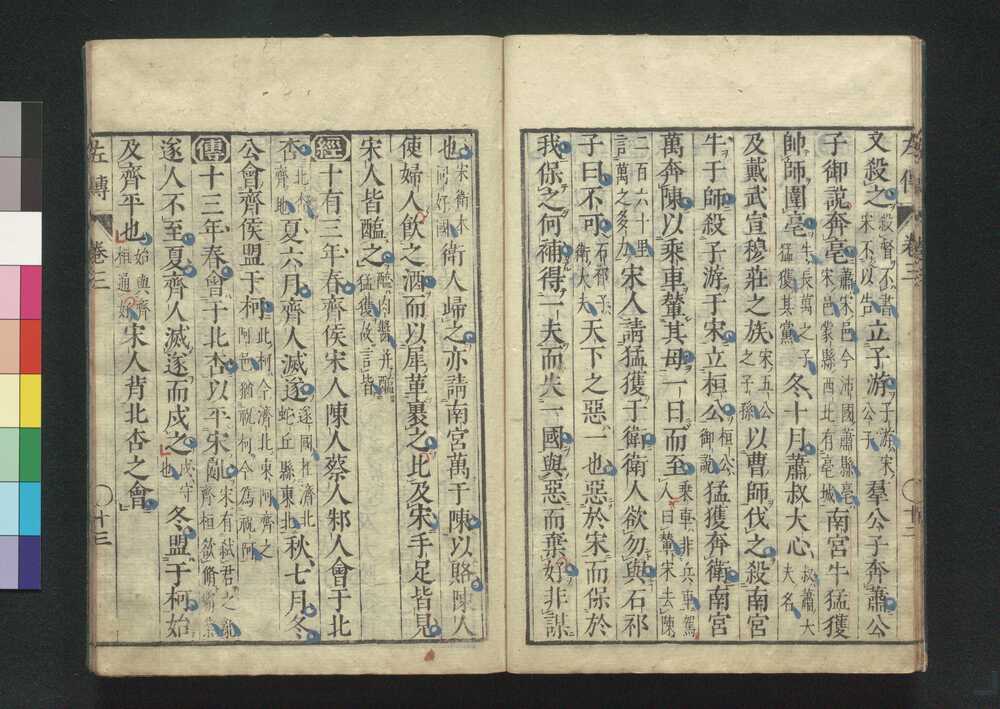 左傳 卷三
又殺之殺督不書宋不以告立子游子游宋公子群公子奔蕭公
子御說奔亳蕭宋邑今沛國蕭縣亳宋邑蒙縣西北有亳城南宮牛猛獲
帥師圍亳牛長萬之子猛獲其黨冬十月蕭叔大心叔蕭大夫名
及戴武宣穆莊之族宋五公之子孫以曹師伐之殺南宮
牛于師殺子游于宋立桓公桓公御說猛獲奔衛南宮
萬奔陳以乘車輦其母一日而至乘車非兵車駕人曰輦宋去陳
二百六十里言萬之多力宋人請猛獲于衛衛人欲勿與石祁
子曰不可石祁子衛大夫天下之惡一也惡於宋而保於
我保之何補得一夫而失一國與惡而棄好非謀
也宋衛本同好國衛人歸之亦請南宮萬于陳以賂陳人
使婦人飲之酒而以犀革裹之比及宋手足皆見
宋人皆醢之醢肉醬并醢猛獲故言皆
經十有三年春齊侯宋人陳人蔡人邾人會于北
杏北杏齊地夏六月齊人滅遂遂國在濟北蛇丘縣東北秋七月冬
公會齊侯盟于柯此柯今濟北東阿齊之阿邑猶祝柯今爲祝阿
傳十三年春會于北杏以平宋亂宋有弑君之亂齊桓欲脩霸業
遂人不至夏齊人滅遂而戍之戍守也冬盟于柯始
及齊平也始與齊桓通好宋人背北杏之會
左傳 卷三 十三